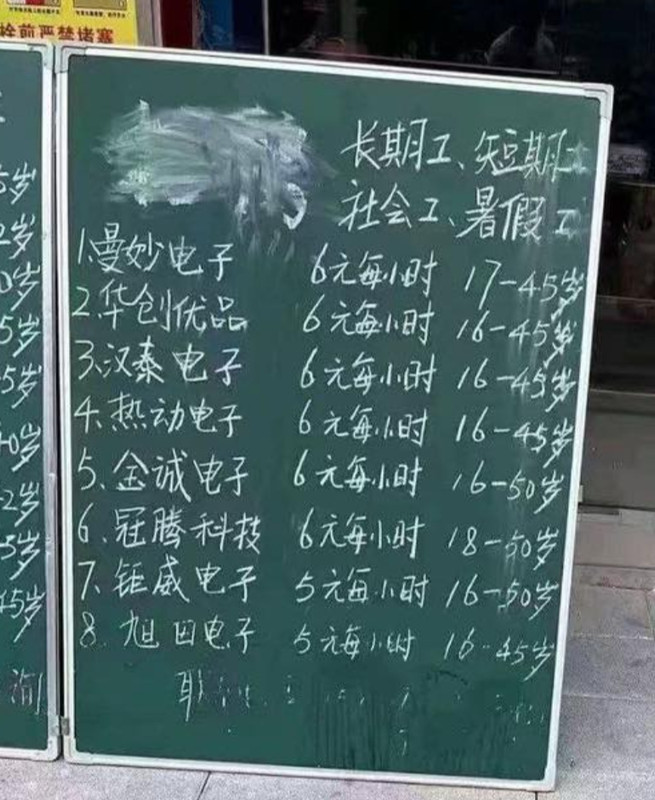 栓前严禁堵塞
长期工、短期工
社会工、暑假工
1.曼妙电子 6元每小时 17-45岁
2.华创优品 6元每小时 16-45岁
3.汉泰电子 6元每小时 16-45岁
4.热动电子 6元每小时 16-45岁
5、金诚电子 6元每小时 16-50岁
6、冠腾科技 6元每小时 18-50岁
7、钜威电子 5元每小时 16-50岁
8. 旭田电子 5元每小时 16-45岁
联
5岁
2岁
0岁
5岁
5岁
40岁
-2岁
-5岁
45岁